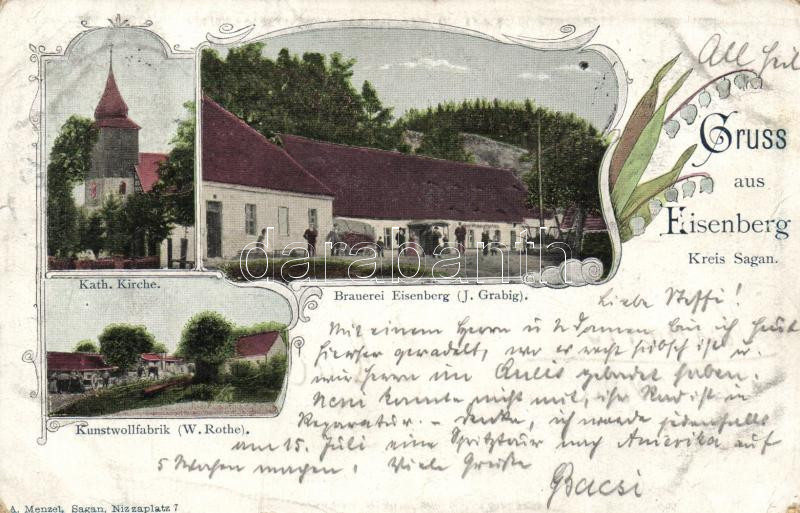 All Heil
Gruss
aus
Eisenberg
Kreis Sagan.
Kath. Kirche.
Brauerei Eisenberg (J. Grabig).
Kunstwollfabrik (W. Rothe).
darabanth.com
Liebe Steffi!
Mit einem Herrn u 2 Damen bin ich heut
hierher geradelt, wo es recht hübsch ist u.
wir Herrn im gebadet haben.
konnte nicht mit, ihr Rad ist in
Reparatur. – Denke, ich werde jedenfalls
am 15. Juli eine Spritztour nach Amerika auf
5 Wochen machen. Viele Grüße
Bacsi
A. Menzel, Sagan, Nizzaplatz 7